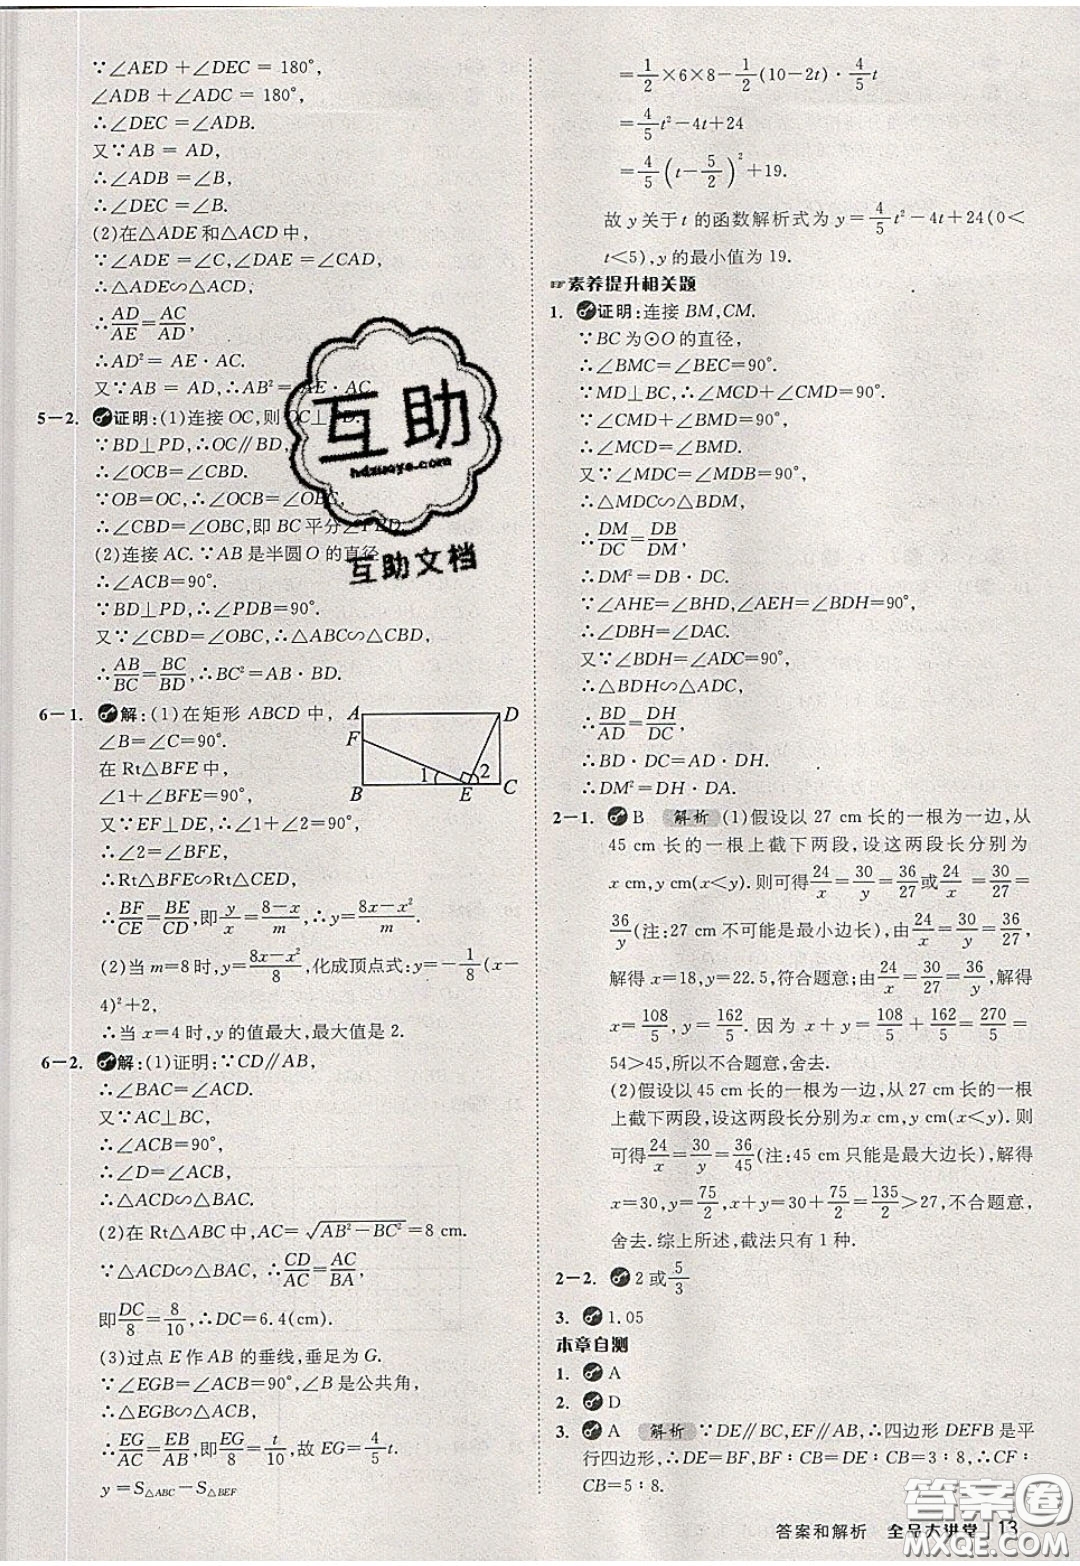 ∵∠AED+∠DEC=180°,
∠ADB+∠ADC=180°,
∴∠DEC=∠ADB.
又∵AB=AD,
∴∠ADB=∠B,
∴∠DEC=∠B.
(2)在△ADE和△ACD中,
∵∠ADE=∠C,∠DAE=∠CAD,
∴△ADE∽△ACD,
∴AD/AE=AC/AD,
∴AD²=AE·AC.
又∵AB=AD,∴AB²=AE·AC.
5-2. 证明:(1)连接OC,则OC⊥PD.
∵BD⊥PD,∴OC∥BD,
∴∠OCB=∠CBD.
∵OB=OC,∴∠OCB=∠OBC,
∴∠CBD=∠OBC,即BC平分∠PBD.
(2)连接AC.∵AB是半圆O的直径,
∴∠ACB=90°.
∵BD⊥PD,∴∠PDB=90°.
又∵∠CBD=∠OBC,∴△ABC∽△CBD,
∴AB/BC=BC/BD,∴BC²=AB·BD.
6-1. 解:(1)在矩形ABCD中,
∠B=∠C=90°.
在Rt△BFE中,
∠1+∠BFE=90°.
又∵EF⊥DE,∴∠1+∠2=90°,
∴∠2=∠BFE,
∴Rt△BFE∽Rt△CED,
∴BF/CE=BE/CD,即y/x=(8-x)/m,∴y=(8x-x²)/m.
(2)当m=8时,y=(8x-x²)/8,化成顶点式:y=-1/8(x-
4)²+2,
∴当x=4时,y的值最大,最大值是2.
6-2. 解:(1)证明:∵CD∥AB,
∴∠BAC=∠ACD.
又∵AC⊥BC,
∴∠ACB=90°,
∴∠D=∠ACB,
∴△ACD∽△BAC.
(2)在Rt△ABC中,AC=√(AB²-BC²)=8 cm.
∵△ACD∽△BAC,∴CD/AC=AC/BA,
即DC/8=8/10,∴DC=6.4(cm).
(3)过点E作AB的垂线,垂足为G.
∵∠EGB=∠ACB=90°,∠B是公共角,
∴△EGB∽△ACB,
∴EG/AC=EB/AB,即EG/8=t/10,故EG=4/5t.
y=S△ABC-S△BEF
A
D
F
1
2
B
E
C
=1/2×6×8-1/2(10-2t)·4/5t
=4/5t²-4t+24
=4/5(t-5/2)²+19.
故y关于t的函数解析式为y=4/5t²-4t+24(0<
t<5),y的最小值为19.
☞素养提升相关题
1. 证明:连接BM,CM.
∵BC为⊙O的直径,
∴∠BMC=∠BEC=90°.
∵MD⊥BC,∴∠MCD+∠CMD=90°.
∵∠BMD+∠CMD=90°,
∴∠MCD=∠BMD.
又∵∠MDC=∠MDB=90°,
∴△MDC∽△BDM,
∴DM/DC=DB/DM,
∴DM²=DB·DC.
∵∠AHE=∠BHD,∠AEH=∠BDH=90°,
∴∠DBH=∠DAC.
又∵∠BDH=∠ADC=90°,
∴△BDH∽△ADC,
∴BD/AD=DH/DC,
∴BD·DC=AD·DH,
∴DM²=DH·DA.
2-1. B 解析 (1)假设以27 cm长的一根为一边,从
45 cm长的一根上截下两段,设这两段长分别为
x cm,y cm(x<y).则可得24/x=30/y=36/27或24/x=30/27=
36/y(注:27 cm不可能是最小边长),由24/x=30/y=36/27,
解得x=18,y=22.5,符合题意;由24/x=30/27=36/y,解得
x=108/5,y=162/5.因为x+y=108/5+162/5=270/5=
54>45,所以不合题意,舍去.
(2)假设以45 cm长的一根为一边,从27 cm长的一根
上截下两段,设这两段长分别为x cm,y cm(x<y).则
可得24/x=30/y=36/45(注:45 cm只能是最大边长),解得
x=30,y=75/2,x+y=30+75/2=135/2>27,不合题意,
舍去.综上所述,截法只有1种.
2-2. 2或5/3
3. 1.05
本章自测
1. A
2. D
3. A 解析 ∵DE∥BC,EF∥AB,∴四边形DEFB是平
行四边形,∴DE=BF,BF:BC=3:8,∴CF:
CB=5:8.
互助
hdzuoye.com
互助文档
答案圈
MXQE.COM
答案和解析 全品大讲堂 13